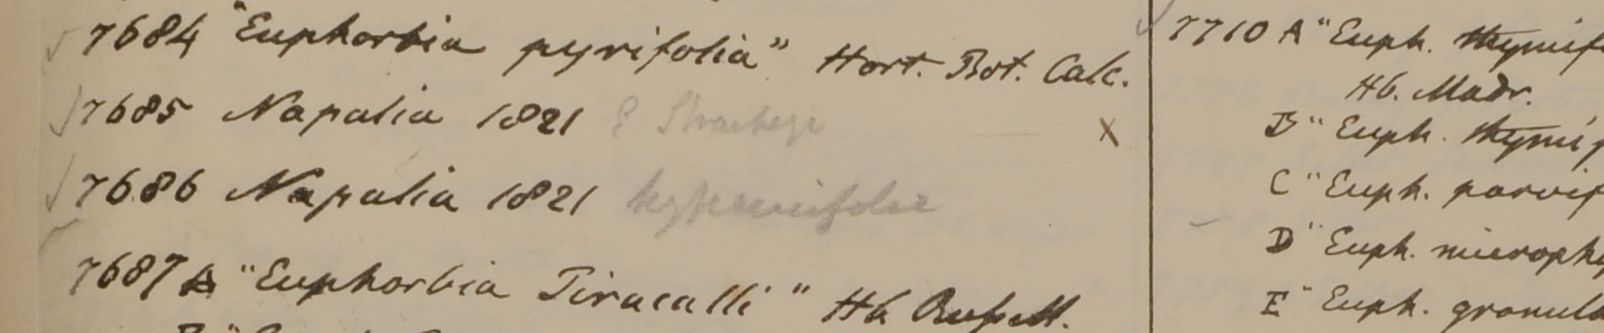 7684 "Euphorbia pyrifolia" Hort. Bot. Calc.
7685 Napalia 1821 E Stracheyi x
7686 Napalia 1821 hypericifolia
7687 A "Euphorbia Tirucalli" Hb Russell.
7710 A "Euph. thymif
Hb. Madr.
B "Euph. thymif
C "Euph. parvif
D "Euph. microphy
E "Euph. granula